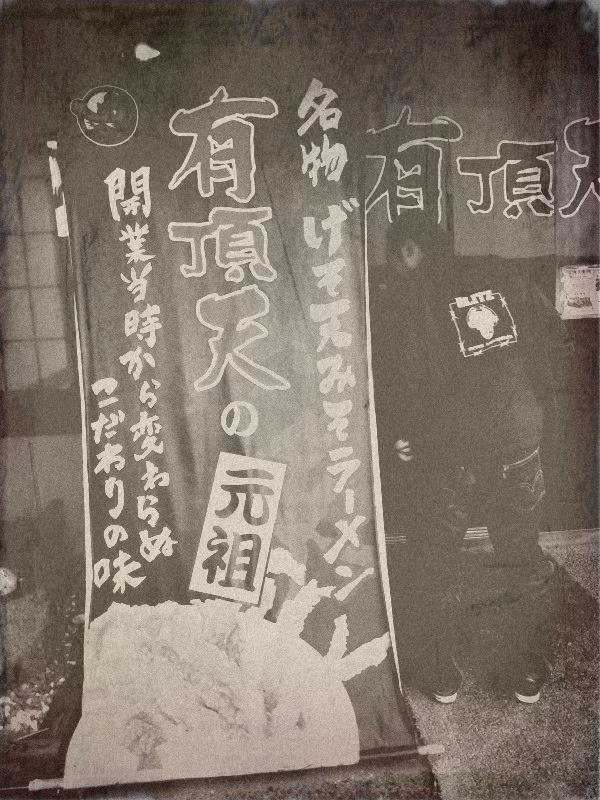 名物 げそ天みそラーメン
有頂天の
元祖
開業当時から変わらぬ
こだわりの味
有頂天
BLITZ